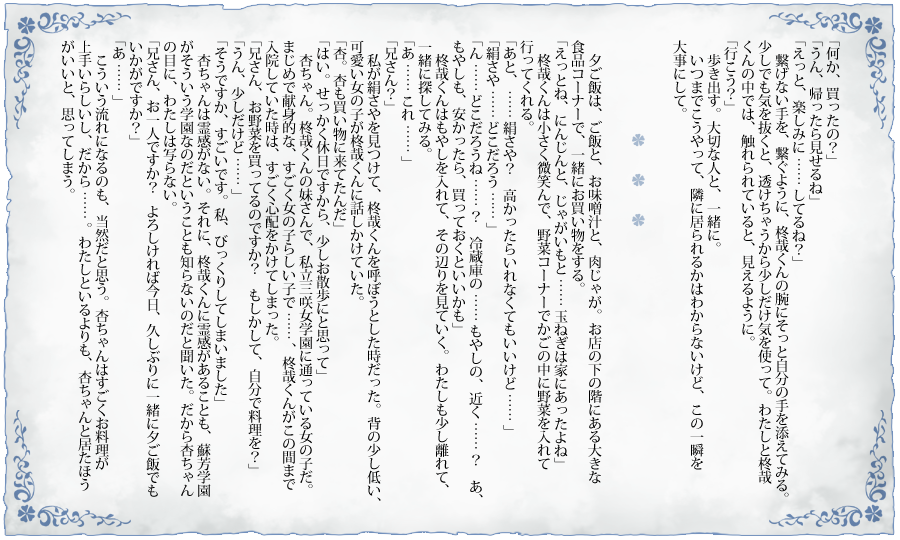 「何か、買ったの？」
「うん、帰ったら見せるね」
「えっと、楽しみに……してるね？」
　繋げない手を、繋ぐように、柊哉くんの腕にそっと自分の手を添えてみる。
少しでも気を抜くと、透けちゃうから少しだけ気を使って。わたしと柊哉
くんの中では、触れられていると、見えるように。
「行こう？」
　歩き出す。大切な人と、一緒に。
　いつまでこうやって、隣に居られるかはわからないけど、この一瞬を
大事にして。
　夕ご飯は、ご飯と、お味噌汁と、肉じゃが。お店の下の階にある大きな
食品コーナーで、一緒にお買い物をする。
「えっとね、にんじんと、じゃがいもと……玉ねぎは家にあったよね」
　柊哉くんは小さく微笑んで、野菜コーナーでかごの中に野菜を入れて
行ってくれる。
「あと、……絹さや？　高かったらいれなくてもいいけど……」
「絹さや……どこだろう……」
「ん……どこだろうね……？　冷蔵庫の……もやしの、近く……？　あ、
もやしも、安かったら、買っておくといいかも」
　柊哉くんはもやしを入れて、その辺りを見ていく。わたしも少し離れて、
一緒に探してみる。
「あ……これ……」
「兄さん？」
　私が絹さやを見つけて、柊哉くんを呼ぼうとした時だった。背の少し低い、
可愛い女の子が柊哉くんに話しかけていた。
「杏。杏も買い物に来てたんだ」
「はい。せっかく休日ですから、少しお散歩にと思って」
　杏ちゃん。柊哉くんの妹さんで、私立三咲女学園に通っている女の子だ。
まじめで献身的な、すごく女の子らしい子で……、柊哉くんがこの間まで
入院していた時は、すごく心配をかけてしまった。
「兄さん、お野菜を買ってるのですか？　もしかして、自分で料理を？」
「うん、少しだけど……」
「そうですか、すごいです。私、びっくりしてしまいました」
　杏ちゃんは霊感がない。それに、柊哉くんに霊感があることも、蘇芳学園
がそういう学園なのだということも知らないのだと聞いた。だから杏ちゃん
の目に、わたしは写らない。
「兄さん、お一人ですか？　よろしければ今日、久しぶりに一緒に夕ご飯でも
いかがですか？」
「あ……」
　こういう流れになるのも、当然だと思う。杏ちゃんはすごくお料理が
上手いらしいし、だから……。わたしといるよりも、杏ちゃんと居たほう
がいいと、思ってしまう。